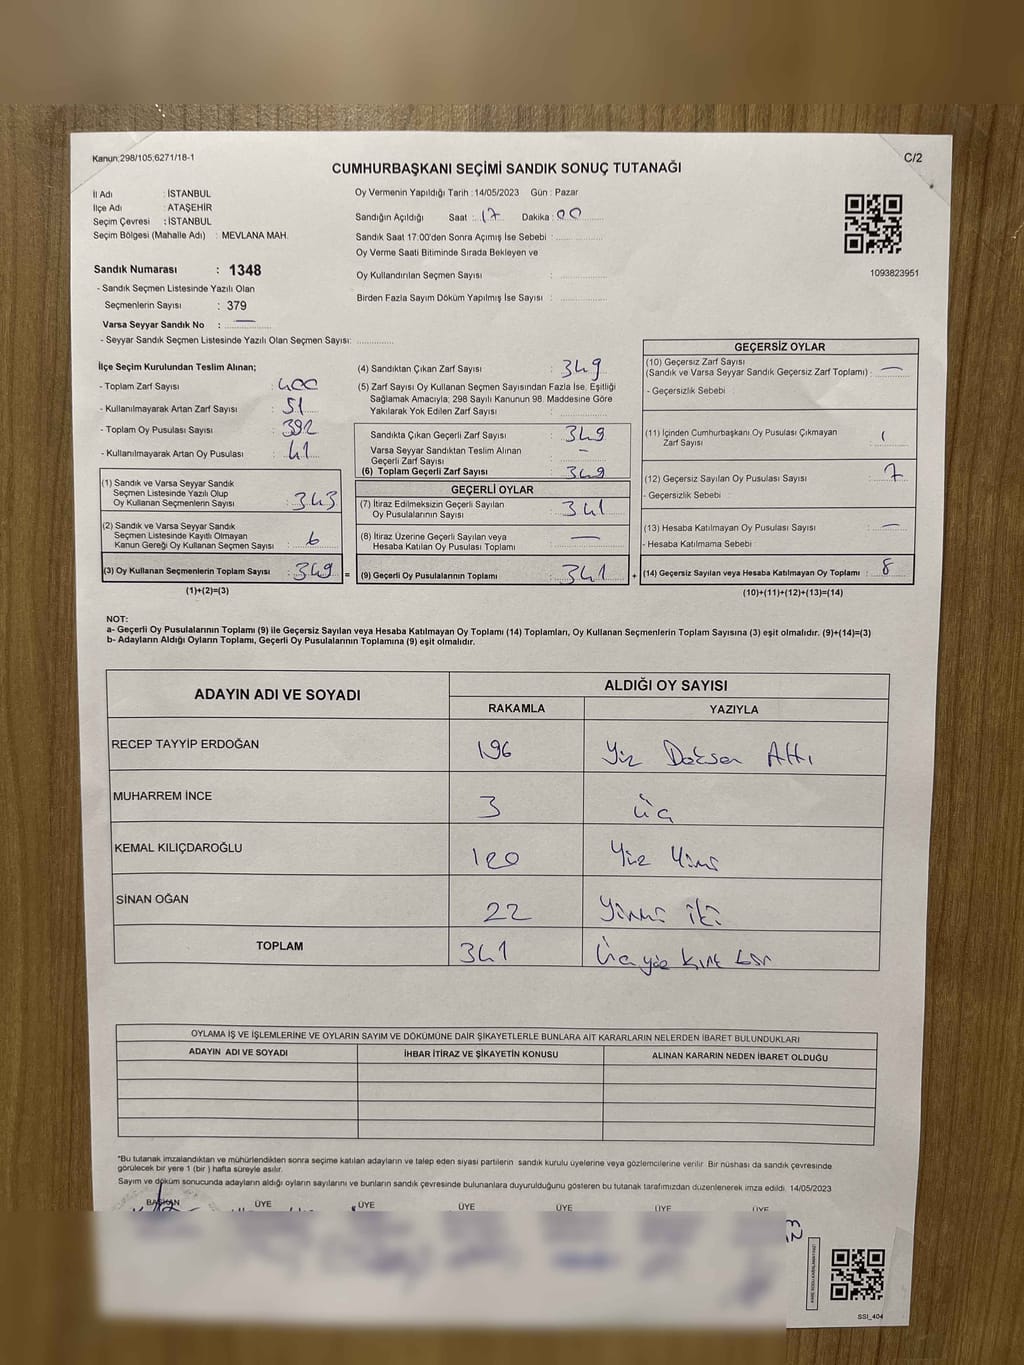 Kanun;298/105;6271/18-1
C/2
CUMHURBAŞKANI SEÇİMİ SANDIK SONUÇ TUTANAĞI
İl Adı : İSTANBUL
İlçe Adı : ATAŞEHİR
Seçim Çevresi : İSTANBUL
Seçim Bölgesi (Mahalle Adı) : MEVLANA MAH.
Sandık Numarası : 1348
- Sandık Seçmen Listesinde Yazılı Olan
Seçmenlerin Sayısı : 379
Varsa Seyyar Sandık No : —
- Seyyar Sandık Seçmen Listesinde Yazılı Olan Seçmen Sayısı:
Oy Vermenin Yapıldığı Tarih :14/05/2023 Gün : Pazar
Sandığın Açıldığı Saat : 17 Dakika : 00
Sandık Saat 17:00'den Sonra Açımış İse Sebebi :
Oy Verme Saati Bitiminde Sırada Bekleyen ve
Oy Kullandırılan Seçmen Sayısı :
Birden Fazla Sayım Döküm Yapılmış İse Sayısı :
1093823951
İlçe Seçim Kurulundan Teslim Alınan;
- Toplam Zarf Sayısı : 400
- Kullanılmayarak Artan Zarf Sayısı : 51
- Toplam Oy Pusulası Sayısı : 392
- Kullanılmayarak Artan Oy Pusulası : 41
(1) Sandık ve Varsa Seyyar Sandık
Seçmen Listesinde Yazılı Olup
Oy Kullanan Seçmenlerin Sayısı : 343
(2) Sandık ve Varsa Seyyar Sandık
Seçmen Listesinde Kayıtlı Olmayan
Kanun Gereği Oy Kullanan Seçmen Sayısı : 6
(3) Oy Kullanan Seçmenlerin Toplam Sayısı : 349 =
(1)+(2)=(3)
(4) Sandıktan Çıkan Zarf Sayısı : 349
(5) Zarf Sayısı Oy Kullanan Seçmen Sayısından Fazla İse, Eşitliği
Sağlamak Amacıyla; 298 Sayılı Kanunun 98. Maddesine Göre
Yakılarak Yok Edilen Zarf Sayısı :
Sandıkta Çıkan Geçerli Zarf Sayısı : 349
Varsa Seyyar Sandıktan Teslim Alınan
Geçerli Zarf Sayısı : —
(6) Toplam Geçerli Zarf Sayısı : 349
GEÇERLİ OYLAR
(7) İtiraz Edilmeksizin Geçerli Sayılan
Oy Pusulalarının Sayısı : 341
(8) İtiraz Üzerine Geçerli Sayılan veya
Hesaba Katılan Oy Pusulası Toplamı : —
(9) Geçerli Oy Pusulalarının Toplamı : 341 +
GEÇERSİZ OYLAR
(10) Geçersiz Zarf Sayısı
(Sandık ve Varsa Seyyar Sandık Geçersiz Zarf Toplamı) : —
- Geçersizlik Sebebi
(11) İçinden Cumhurbaşkanı Oy Pusulası Çıkmayan
Zarf Sayısı : 1
(12) Geçersiz Sayılan Oy Pusulası Sayısı : 7
- Geçersizlik Sebebi :
(13) Hesaba Katılmayan Oy Pusulası Sayısı : —
- Hesaba Katılmama Sebebi
(14) Geçersiz Sayılan veya Hesaba Katılmayan Oy Toplamı : 8
(10)+(11)+(12)+(13)=(14)
NOT:
a- Geçerli Oy Pusulalarının Toplamı (9) ile Geçersiz Sayılan veya Hesaba Katılmayan Oy Toplamı (14) Toplamları, Oy Kullanan Seçmenlerin Toplam Sayısına (3) eşit olmalıdır. (9)+(14)=(3)
b- Adayların Aldığı Oyların Toplamı, Geçerli Oy Pusulalarının Toplamına (9) eşit olmalıdır.
ADAYIN ADI VE SOYADI ALDIĞI OY SAYISI
RAKAMLA YAZIYLA
RECEP TAYYİP ERDOĞAN 196 Yüz Doksan Altı
MUHARREM İNCE 3 Üç
KEMAL KILIÇDAROĞLU 120 Yüz Yirmi
SİNAN OĞAN 22 Yirmi iki
TOPLAM 341 Üçyüz kırk bir
OYLAMA İŞ VE İŞLEMLERİNE VE OYLARIN SAYIM VE DÖKÜMÜNE DAİR ŞİKAYETLERLE BUNLARA AİT KARARLARIN NELERDEN İBARET BULUNDUKLARI
ADAYIN ADI VE SOYADI İHBAR İTİRAZ VE ŞİKAYETİN KONUSU ALINAN KARARIN NEDEN İBARET OLDUĞU
*Bu tutanak imzalandıktan ve mühürlendikten sonra seçime katılan adayların ve talep eden siyasi partilerin sandık kurulu üyelerine veya gözlemcilerine verilir. Bir nüshası da sandık çevresinde
görülecek bir yere 1 (bir ) hafta süreyle asılır.
Sayım ve döküm sonucunda adayların aldığı oyların sayılarını ve bunların sandık çevresinde bulunanlara duyurulduğunu gösteren bu tutanak tarafımızdan düzenlenerek imza edildi. 14/05/2023
BAŞKAN ÜYE ÜYE ÜYE ÜYE ÜYE ÜYE
SSI_404